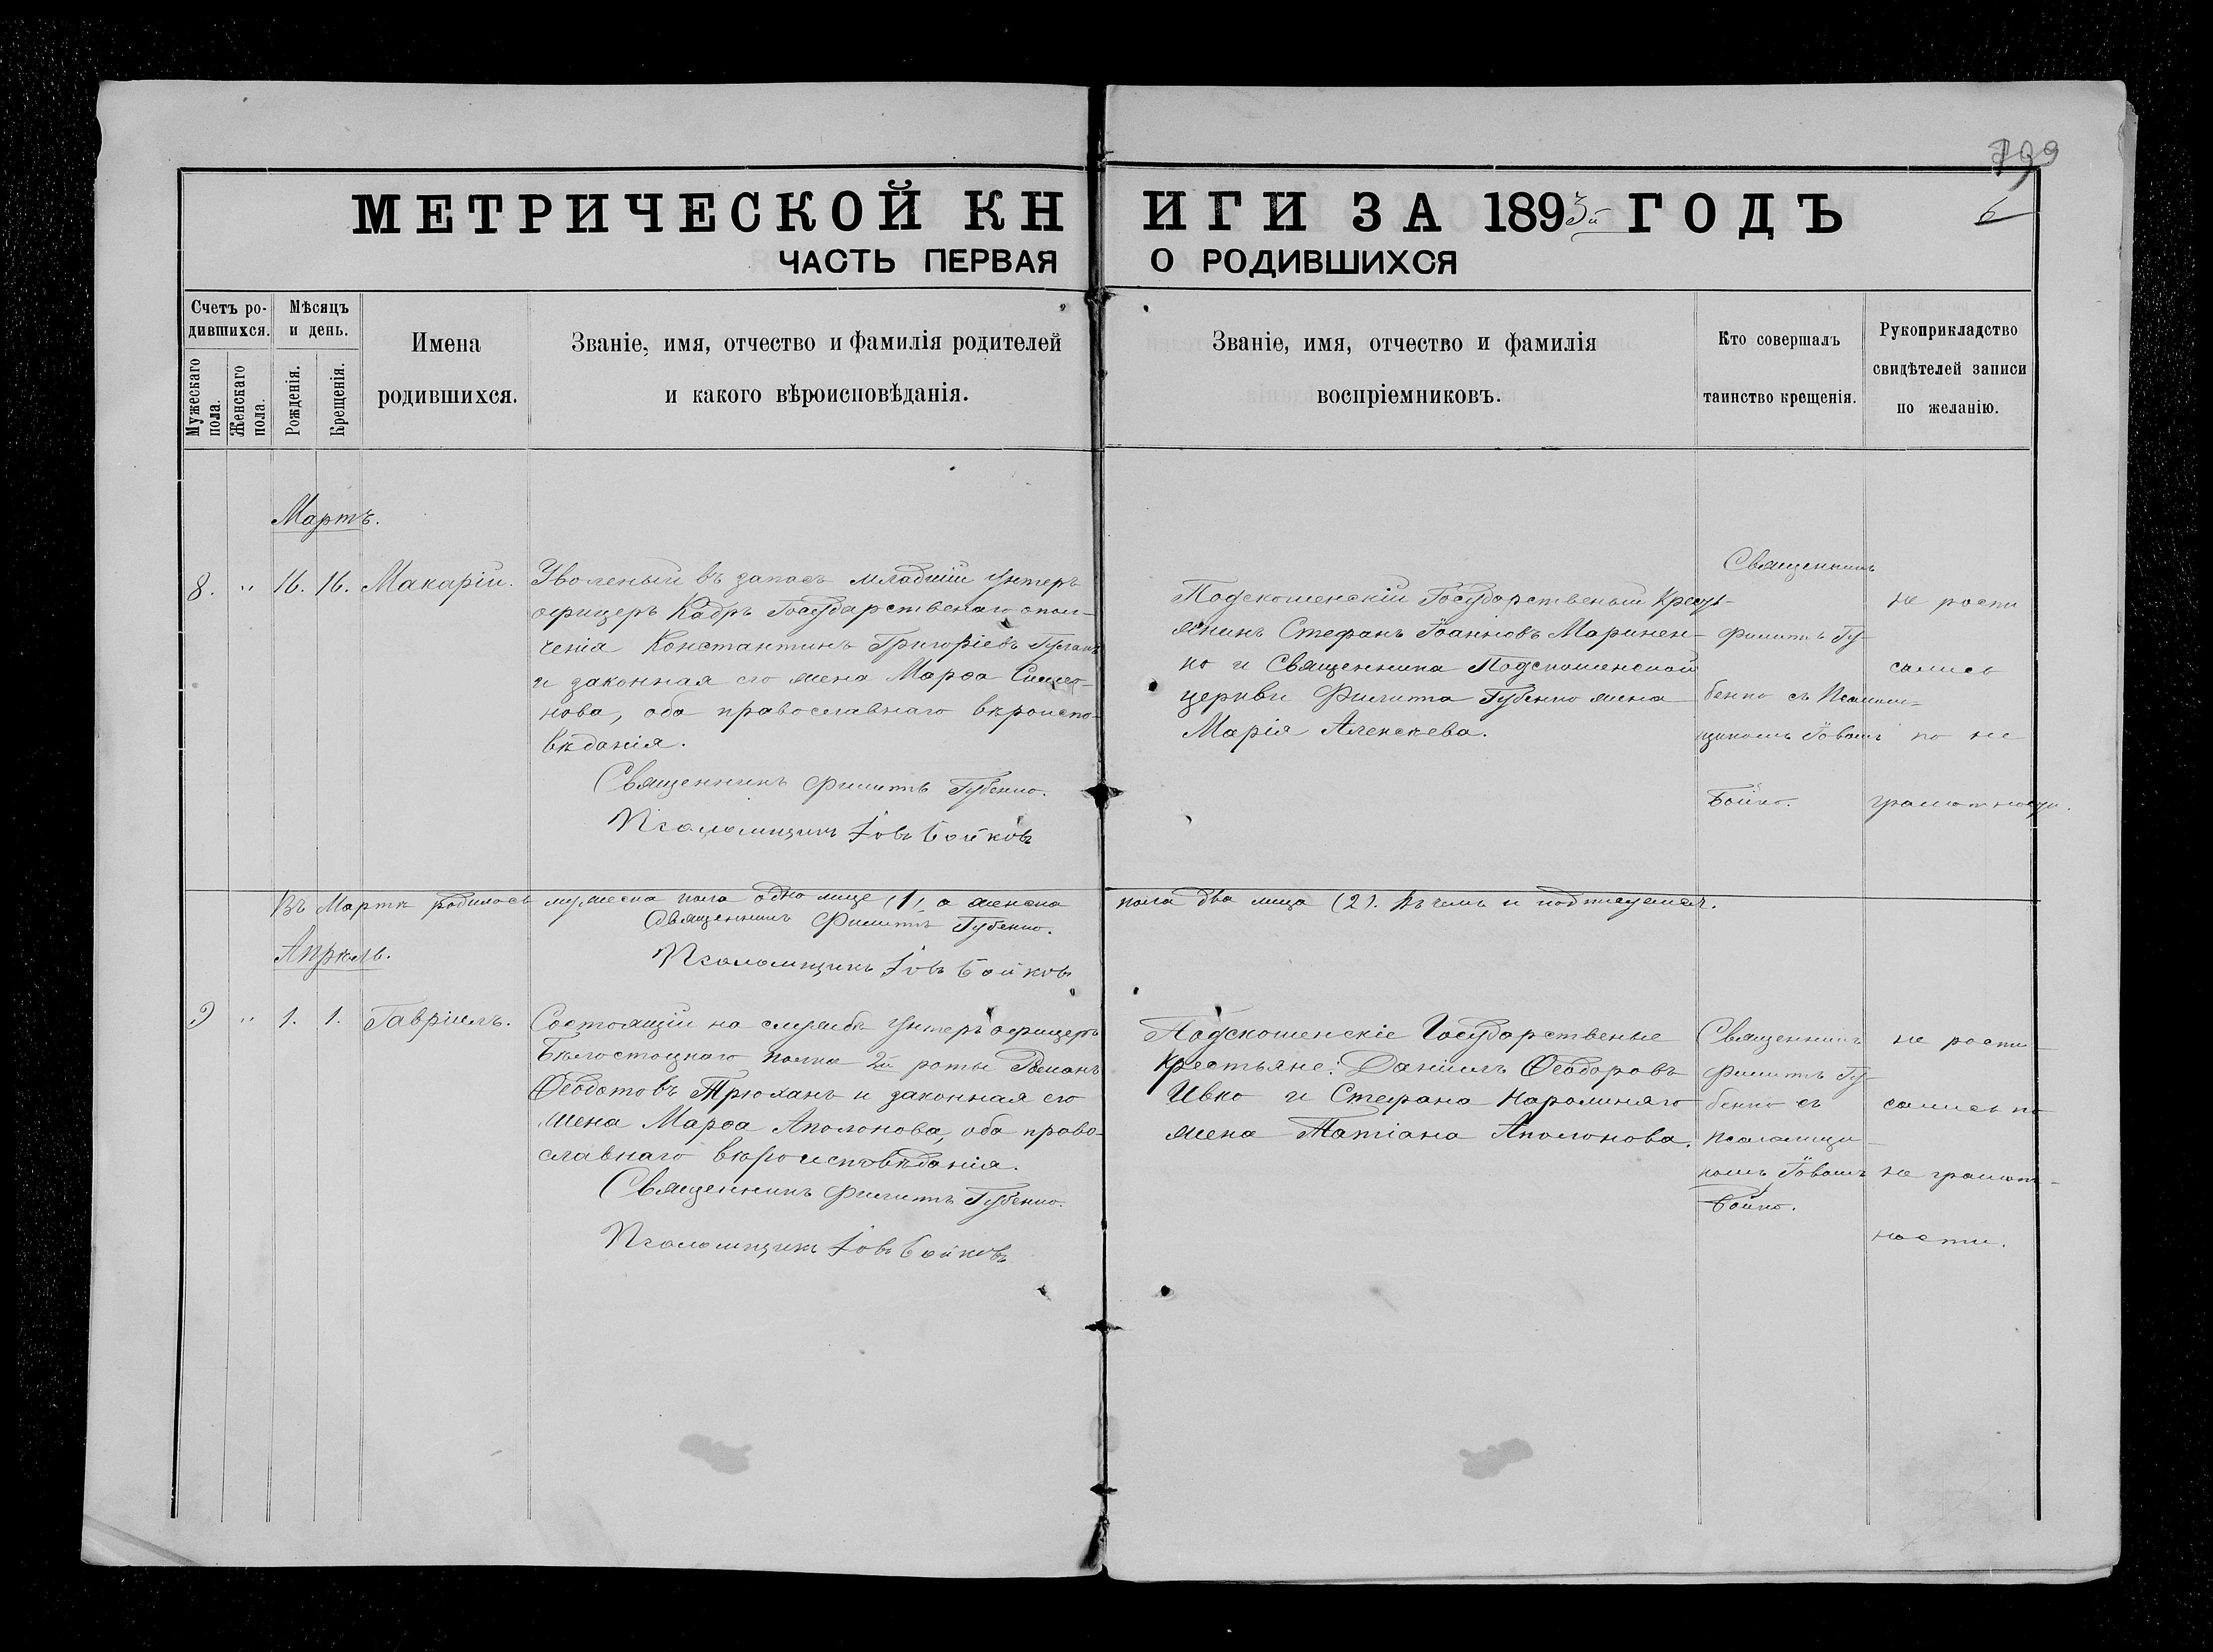 799
6
МЕТРИЧЕСКОЙ КНИГИ ЗА 1893й ГОДЪ
ЧАСТЬ ПЕРВАЯ О РОДИВШИХСЯ
Счетъ ро-
дившихся.
Мужескаго
пола.
Женскаго
пола.
Мѣсяцъ
и день.
Рожденія.
Крещенія.
Имена
родившихся.
Званіе, имя, отчество и фамилія родителей
и какого вѣроисповѣданія.
Званіе, имя, отчество и фамилія
воспріемниковъ.
Кто совершалъ
таинство крещенія.
Рукоприкладство
свидѣтелей записи
по желанію.
Мартъ.
8. " 16. 16. Макарій.
Уволеный въ запасъ младшій унтеръ
офицеръ Кадръ Государственаго опол-
ченія Константинъ Григоріевъ
и законная его жена Марѳа Симео-
нова, оба православнаго вѣроиспо-
вѣданія.
Священникъ Филиппъ Губенко.
Псаломщикъ Іовъ Бойковъ
Подскошенскій Государственый Крест-
янинъ Стефанъ Іоанновъ Маринен-
ко и Священника Подскошенской
церкви Филиппа Губенко жена
Марія Алексѣева.
Священникъ
Филиппъ Гу-
бенко съ Псалом-
щикомъ Іовомъ
Бойко.
не роспи
сались
по не
грамотности.
Въ Мартѣ родилось мужеска пола одно лице (1) а женска пола два лица (2). въ чемъ и подписуемся.
Священникъ Филиппъ Губенко.
Псаломщикъ Іовъ Бойковъ
Апрѣль.
9 " 1. 1. Гавріилъ.
Состоящій на службѣ унтеръ офицеръ
Бѣлостоцкаго полка 2й роты Романъ
Ѳеодотовъ Трюханъ и законная его
жена Марѳа Аполонова, оба право-
славнаго вѣроисповѣданія.
Священникъ Филиппъ Губенко.
Псаломщикъ Іовъ Бойковъ
Подскошенскіе Государственые
Крестьяне: Даніилъ Ѳеодоровъ
Ивко и Стефана
жена Татіана Аполонова.
Священникъ
Филиппъ Гу-
бенко съ
псаломщи-
комъ Іовомъ
Бойко.
не роспи-
сались по
не грамот-
ности.